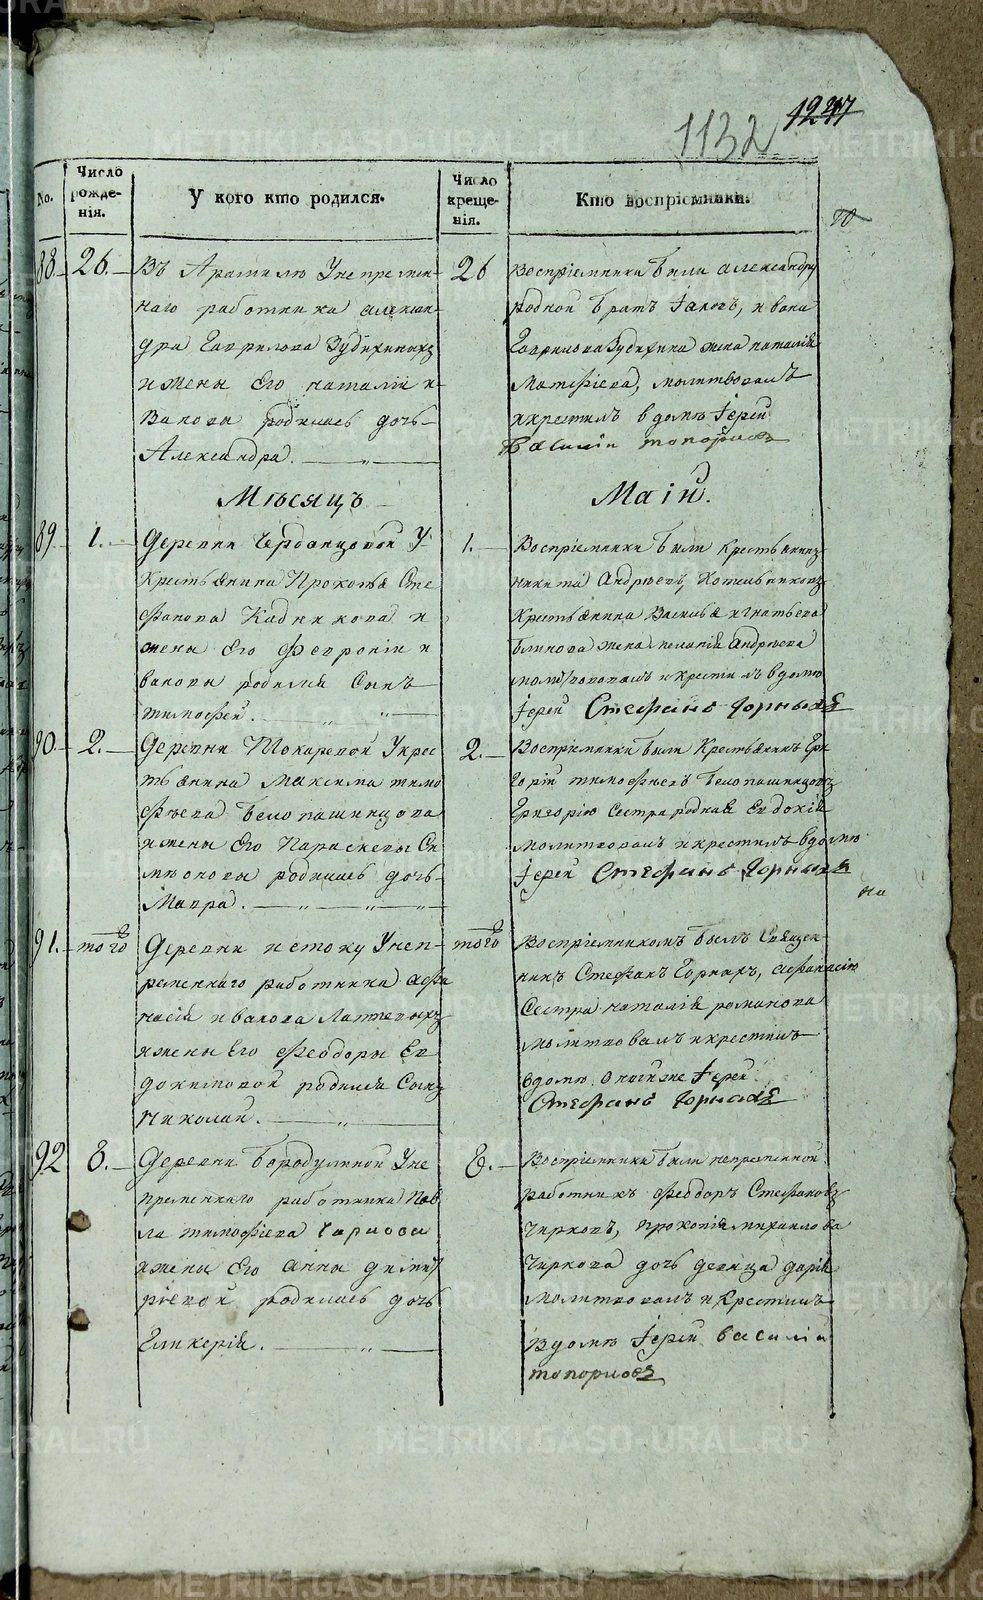 1132
1247
No.
Число рожденія.
У кого кто родился.
Число крещенія.
Кто воспріемники.
88.
26.
Въ Арамилѣ У непремен-
наго работника алексан-
дра Гаврилова Зубихиныхъ
и жены Его наталіи и-
ванова родилась дочь
Александра.
26
Воспріемники были александру
Родной братъ Іаковъ, ивана
Гаврилова Зубихина жена наталія
Матфіева, молитвовалъ
икрестилъ в домѣ Іерей
Василій топорковъ
Мѣсяцъ
Маій.
89.
1.
Деревни Чердонцовой У
Крестьянина Прокопья Сте
фанова Кадникова и
жены Его Февроніи и
вановы родился Сынъ
тимофей.
1.
Воспріемники были крестьянинъ
никита Андрѣевъ Котельниковъ
Крестьянина Василья игнатьева
блинова жена пелагія Андрѣева
молитвовалъ икрестилъ вдомѣ
Іерей Стефанъ Горныхъ
90.
2.
Деревни Токаревой Укрес
тьянина максима тимо
фѣева Белопашинцова
ижены Его Параскевы Си
мѣоновы родилась дочь
Мавра.
2.
Воспріемники были Крестьянинъ Гри
горій тимофѣевъ белопашинцовъ
Григорію Сестра родная Евдокія
молитвовалъ икрестилъ вдомѣ
Іерей Стефанъ Горныхъ
91.
того
Деревни истоку Унеп-
ременнаго работника Афа
насія иванова Лаптевыхъ
ижены Его Феодоры Ев
докимовой родился Сынъ
Николай.
того
Воспріемникомъ былъ Священ-
никъ Стефанъ Горныхъ, афанасію
Сестра наталія романова
молитвовалъ икрестилъ
вдомѣ Оногиже Іерей
Стефанъ Горныхъ
на
92
8.
Деревни Бородулиной Уне
пременнаго работника Пав
ла тимофіева
ижены Его Анны димит
ріевой родилась дочь
Гликерія.
8.
Воспріемники были непременной
работникъ Феодоръ Стефановъ
Чирковъ, прокопія михаилова
Чиркова дочь девица дарія
молитвовалъ и Крестилъ
Вдомѣ Іерей василій
топорковъ
METRIKI.GASO-URAL.RU